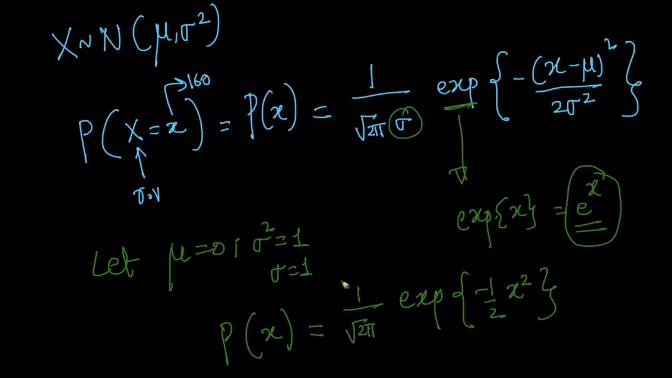 X ~ N(μ, σ²)
→ 160
P(X = x) = P(x) = 1/(√2π σ) exp{-(x-μ)²/2σ²}
r.v
exp{x} = eˣ
Let μ=0; σ²=1
σ=1
P(x) = 1/√2π exp{-1/2 x²}